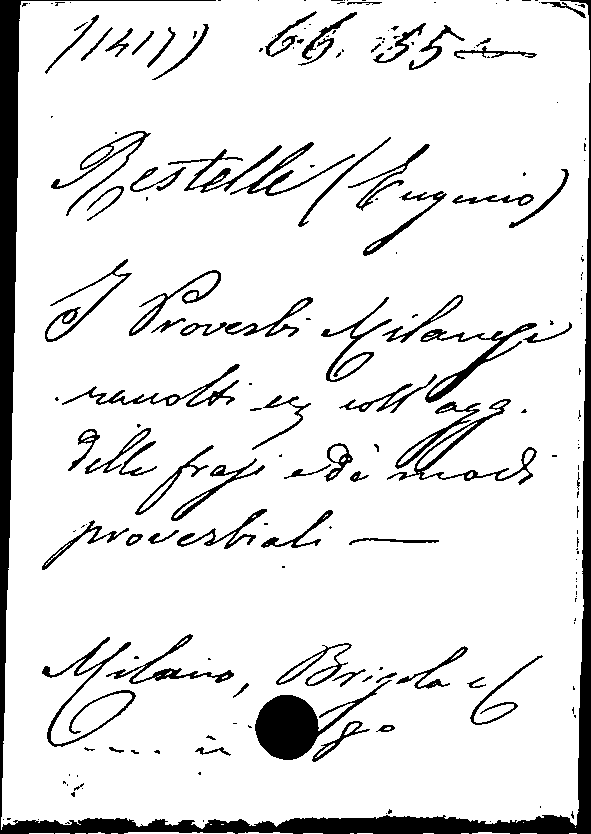 11417) 66. 55
Restelli (Eugenio)
I Proverbi Milanesi
raccolti ecc coll' agg.
delle frasi e de' modi
proverbiali —
Milano, Brigola e C
in